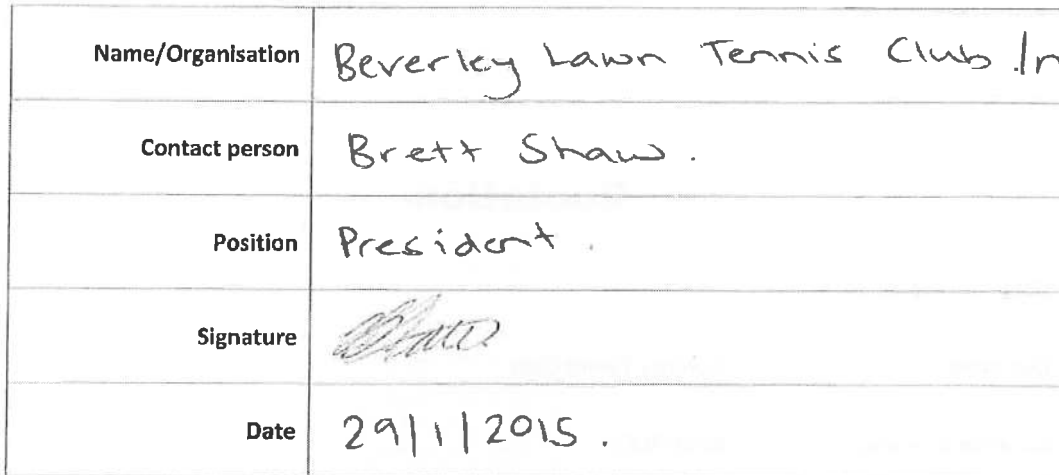 Name/Organisation Beverley Lawn Tennis Club In
Contact person Brett Shaw.
Position President.
Signature
Date 29/1/2015.